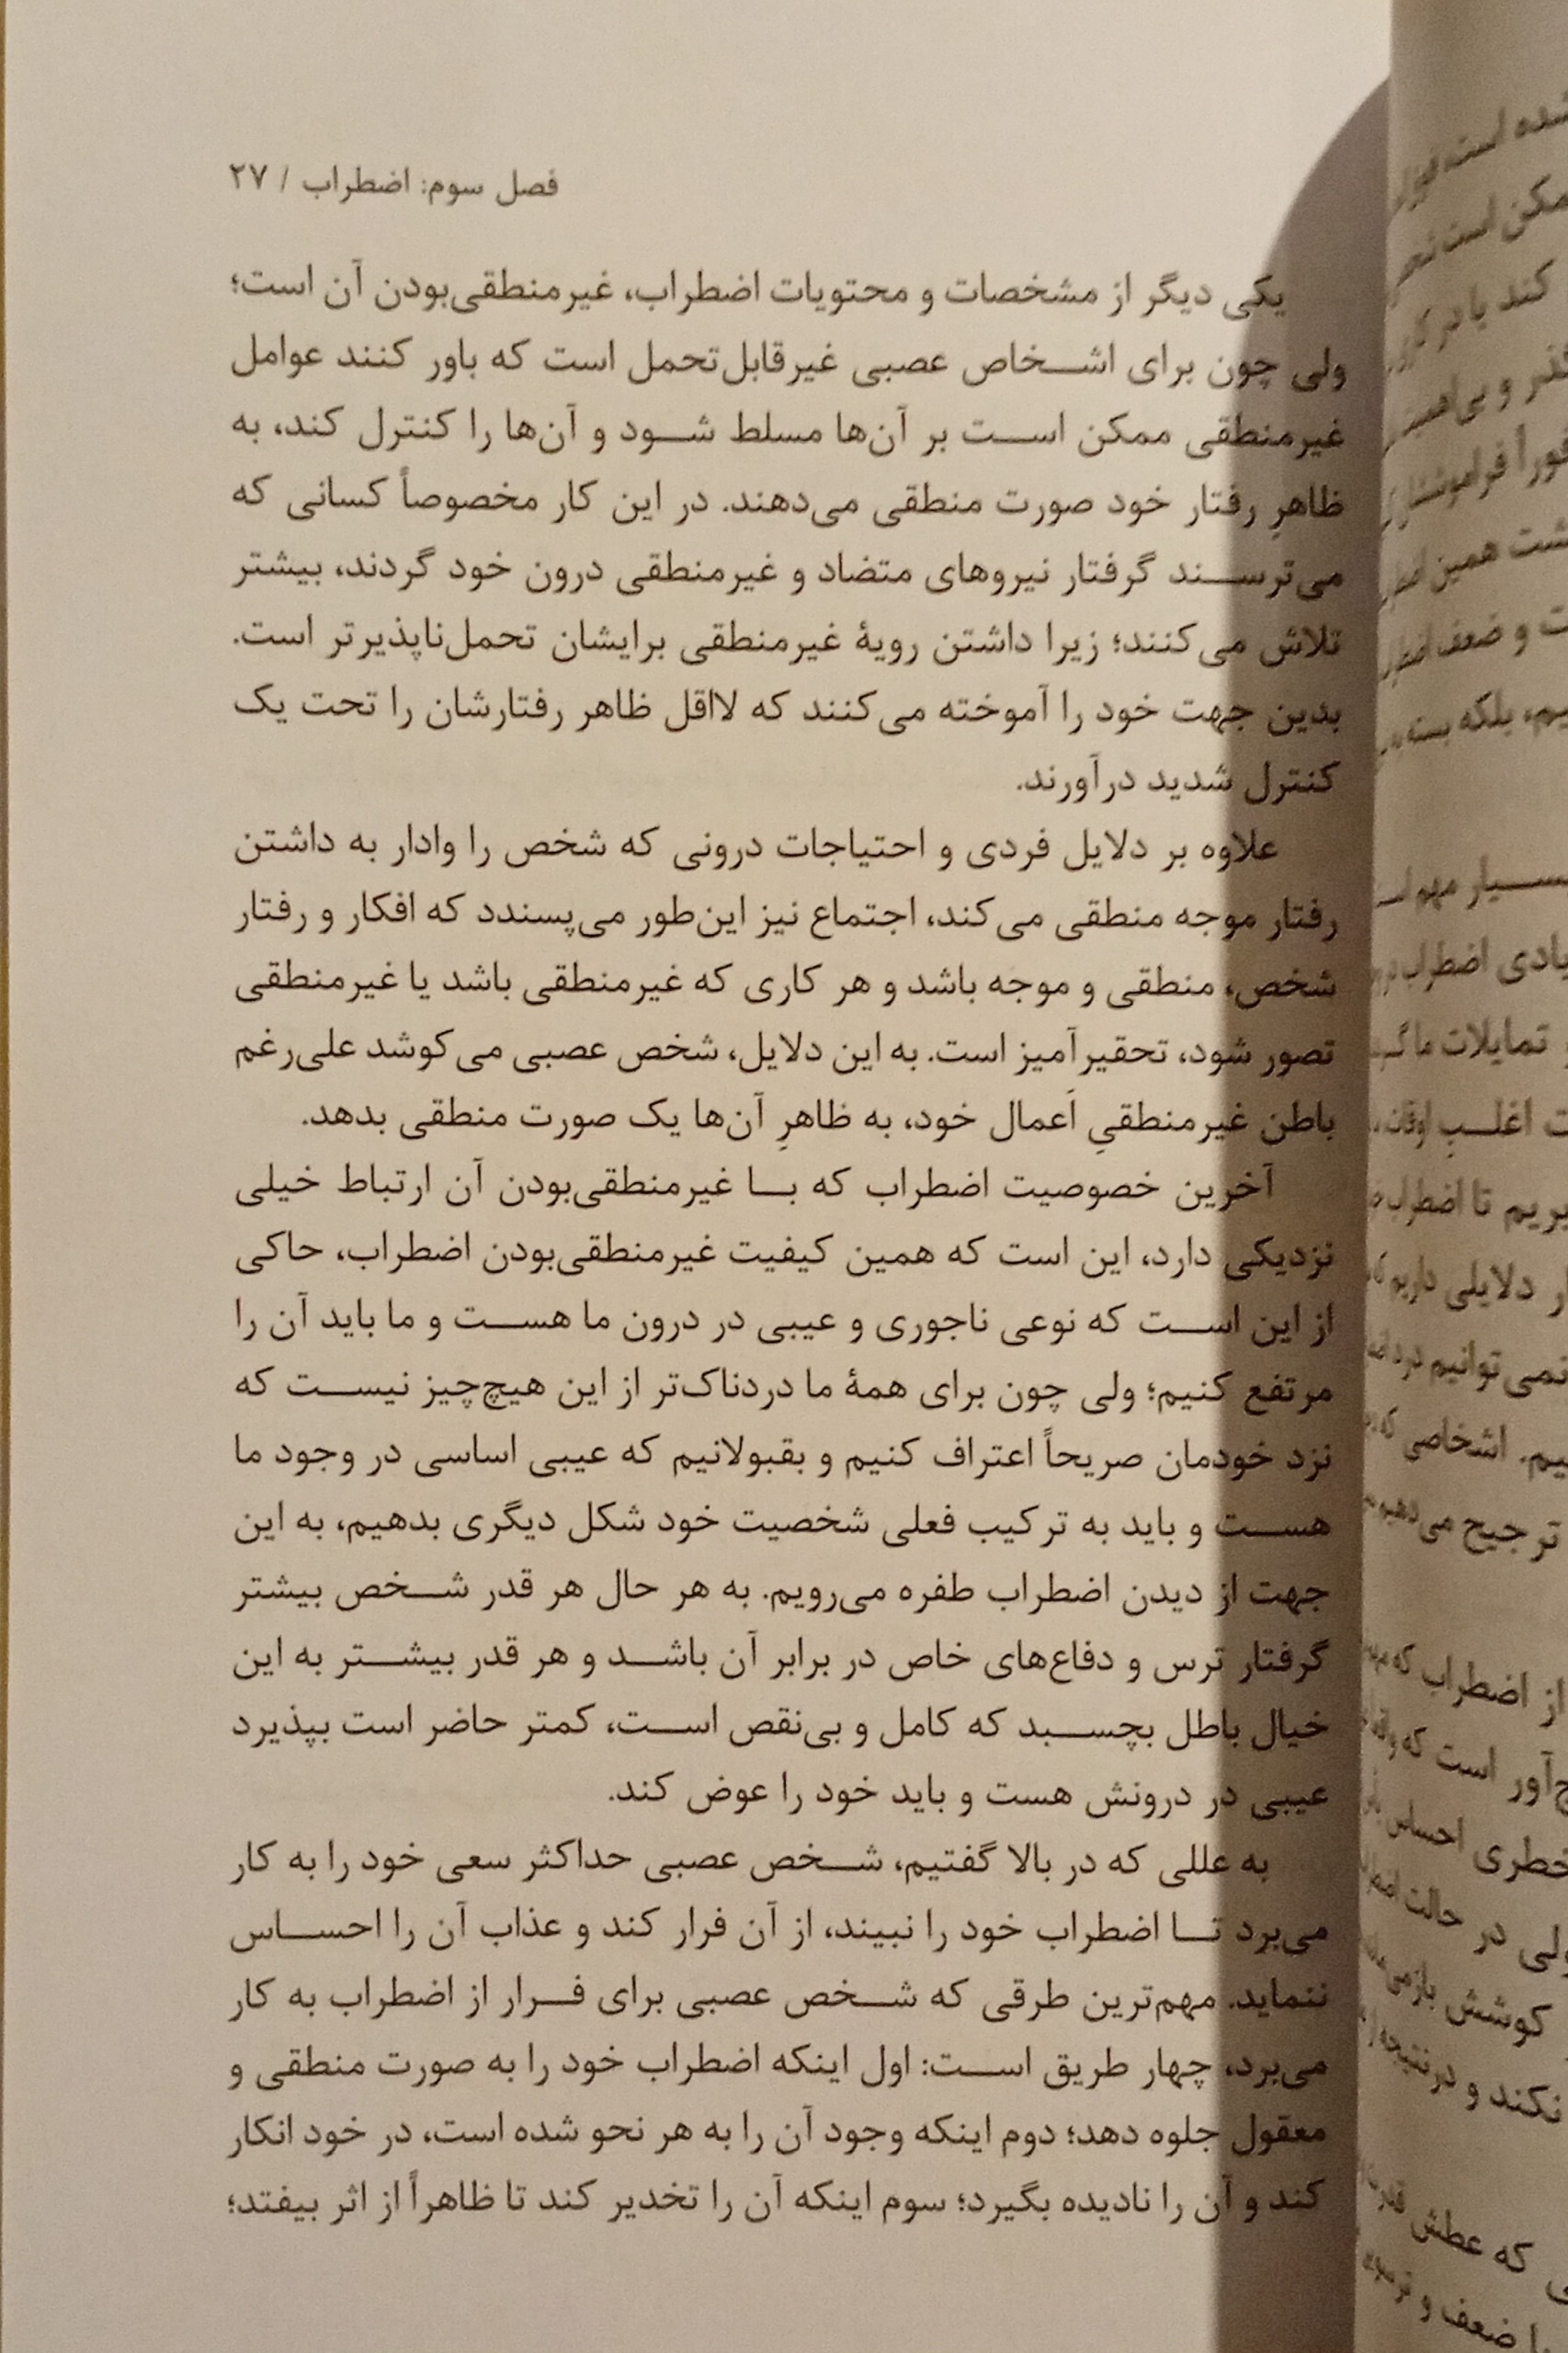 فصل سوم: اضطراب / ۲۷
یکی دیگر از مشخصات و محتویات اضطراب، غیرمنطقی‌بودن آن است؛
ولی چون برای اشخاص عصبی غیرقابل‌تحمل است که باور کنند عوامل
غیرمنطقی ممکن است بر آن‌ها مسلط شود و آن‌ها را کنترل کند، به
ظاهرِ رفتار خود صورت منطقی می‌دهند. در این کار مخصوصاً کسانی که
می‌ترسند گرفتار نیروهای متضاد و غیرمنطقی درون خود گردند، بیشتر
تلاش می‌کنند؛ زیرا داشتن رویهٔ غیرمنطقی برایشان تحمل‌ناپذیرتر است.
بدین جهت خود را آموخته می‌کنند که لااقل ظاهر رفتارشان را تحت یک
کنترل شدید درآورند.
علاوه بر دلایل فردی و احتیاجات درونی که شخص را وادار به داشتن
رفتار موجه منطقی می‌کند، اجتماع نیز این‌طور می‌پسندد که افکار و رفتار
شخص، منطقی و موجه باشد و هر کاری که غیرمنطقی باشد یا غیرمنطقی
تصور شود، تحقیرآمیز است. به این دلایل، شخص عصبی می‌کوشد علی‌رغم
باطن غیرمنطقیِ اَعمال خود، به ظاهرِ آن‌ها یک صورت منطقی بدهد.
آخرین خصوصیت اضطراب که با غیرمنطقی‌بودن آن ارتباط خیلی
نزدیکی دارد، این است که همین کیفیت غیرمنطقی‌بودن اضطراب، حاکی
از این است که نوعی ناجوری و عیبی در درون ما هست و ما باید آن را
مرتفع کنیم؛ ولی چون برای همهٔ ما دردناک‌تر از این هیچ‌چیز نیست که
نزد خودمان صریحاً اعتراف کنیم و بقبولانیم که عیبی اساسی در وجود ما
هست و باید به ترکیب فعلی شخصیت خود شکل دیگری بدهیم، به این
جهت از دیدن اضطراب طفره می‌رویم. به هر حال هر قدر شخص بیشتر
گرفتار ترس و دفاع‌های خاص در برابر آن باشد و هر قدر بیشتر به این
خیال باطل بچسبد که کامل و بی‌نقص است، کمتر حاضر است بپذیرد
عیبی در درونش هست و باید خود را عوض کند.
به عللی که در بالا گفتیم، شخص عصبی حداکثر سعی خود را به کار
می‌برد تا اضطراب خود را نبیند، از آن فرار کند و عذاب آن را احساس
ننماید. مهم‌ترین طرقی که شخص عصبی برای فرار از اضطراب به کار
می‌برد، چهار طریق است: اول اینکه اضطراب خود را به صورت منطقی و
معقول جلوه دهد؛ دوم اینکه وجود آن را به هر نحو شده است، در خود انکار
کند و آن را نادیده بگیرد؛ سوم اینکه آن را تخدیر کند تا ظاهراً از اثر بیفتد؛